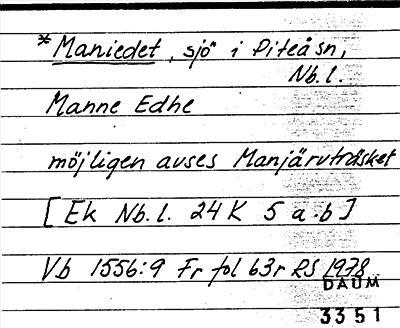 *Maniedet, sjö i Piteå sn,
Nb. l.
Manne Edhe
möjligen avses Manjärvträsket
[Ek Nb. l. 24 K 5 a-b]
Vb 1556:9 Fr fol 63r RS 1978
DAUM
3351